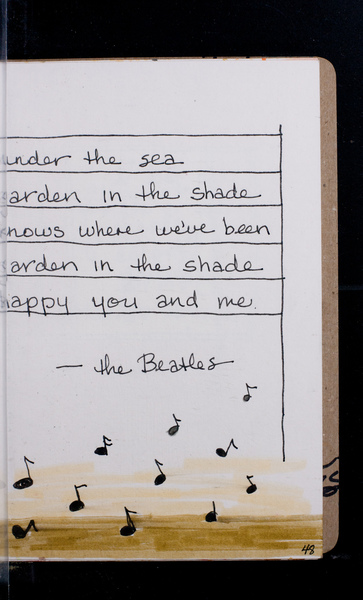 under the sea
arden in the shade
nows where we've been
arden in the shade
happy you and me.
— the Beatles
48